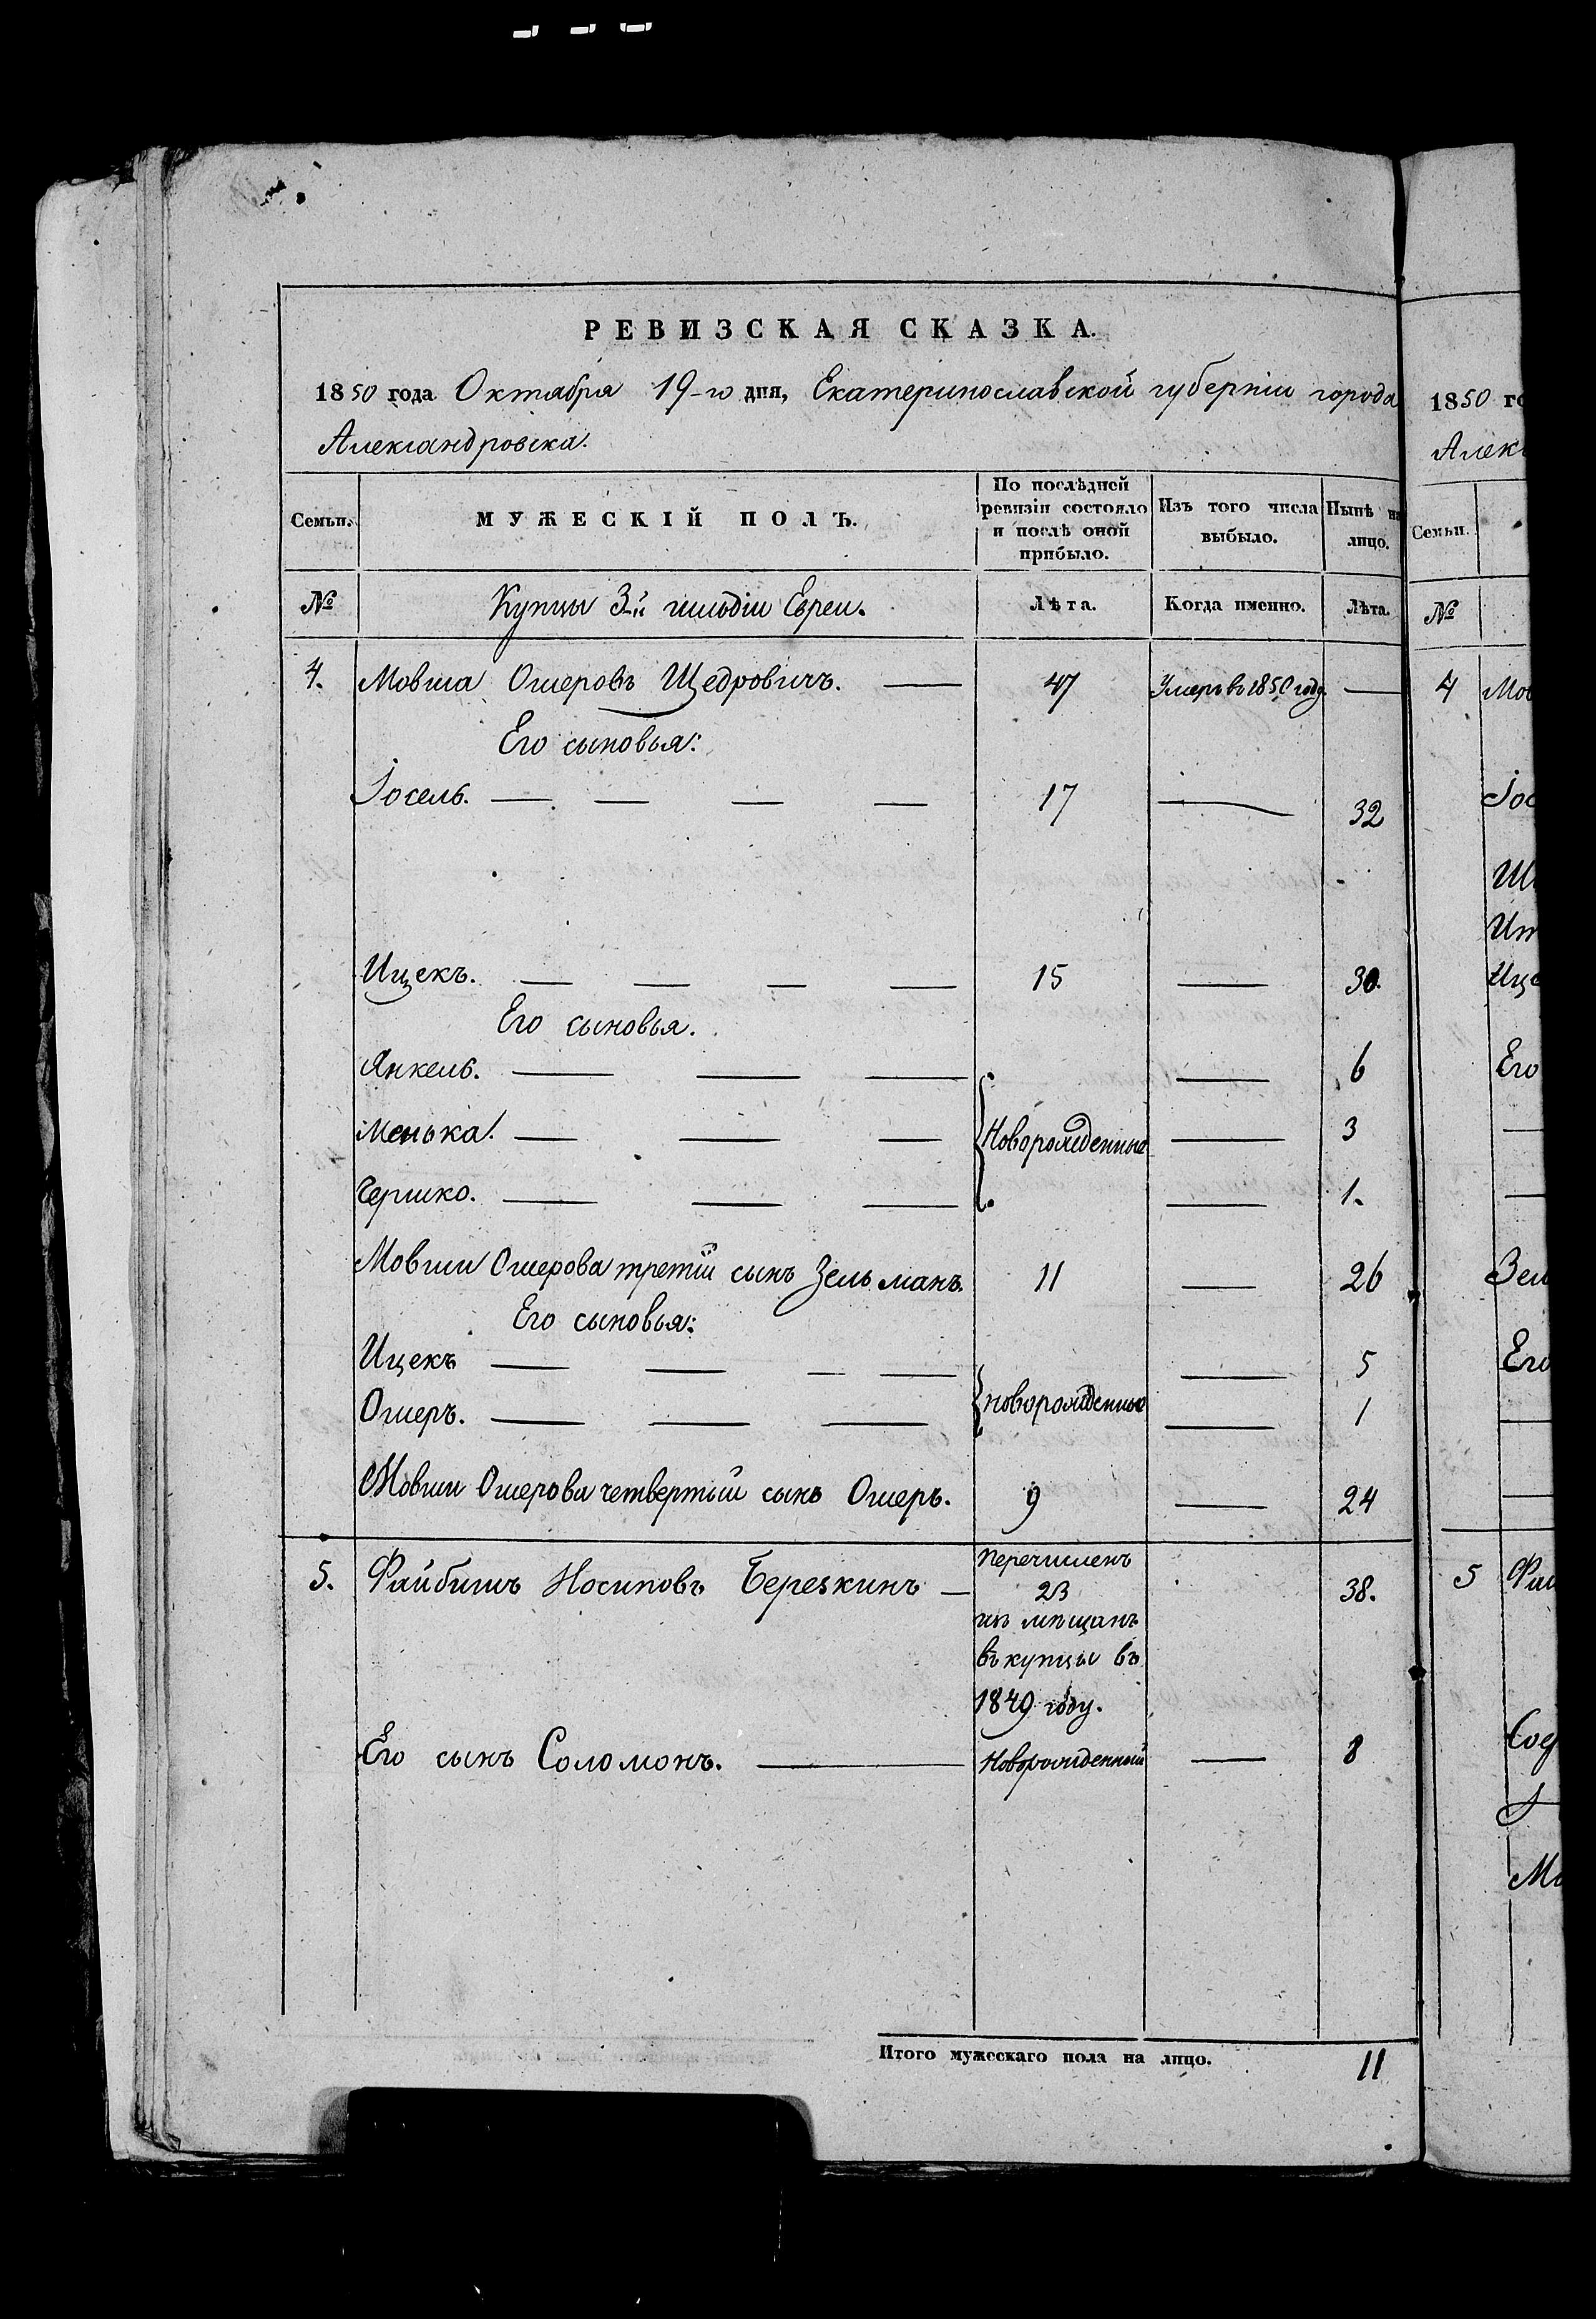 РЕВИЗСКАЯ СКАЗКА.
1850 года Октября 19-го дня, Екатеринославской губерніи города
Александровска.
Семьи. МУЖЕСКІЙ ПОЛЪ. По послѣдней ревизіи состояло и послѣ оной прибыло. Изъ того числа выбыло. Нынѣ на лицо.
№ Купцы 3-й гильдіи Евреи. Лѣта. Когда именно. Лѣта.
4. Мовша Ошеровъ Щедровичъ. — 47 Умеръ въ 1850 году. —
Его сыновья:
Іосель. — — — — 17 — 32
Ицекъ. — — — — 15 — 30.
Его сыновья.
Янкель. — — — — 6
Менька. — — — Новорожденные — 3
Гершко. — — — — 1.
Мовши Ошерова третій сынъ Зельманъ. 11 — 26
Его сыновья:
Ицекъ — — — — — 5
Ошеръ. — — — новорожденные — 1
Мовши Ошерова четвертый сынъ Ошеръ. 9 — 24
5. Файбишъ Носиповъ Березкинъ — Перечисленъ 38.
23
изъ мѣщанъ
въ купцы въ
1849 году.
Его сынъ Соломонъ. — Новорожденный — 8
Итого мужескаго пола на лицо. 11
1850 го
Алек
Семьи.
№
4 Мов
Іос
Ит
Иц
Его
Зел
Его
5 Фа